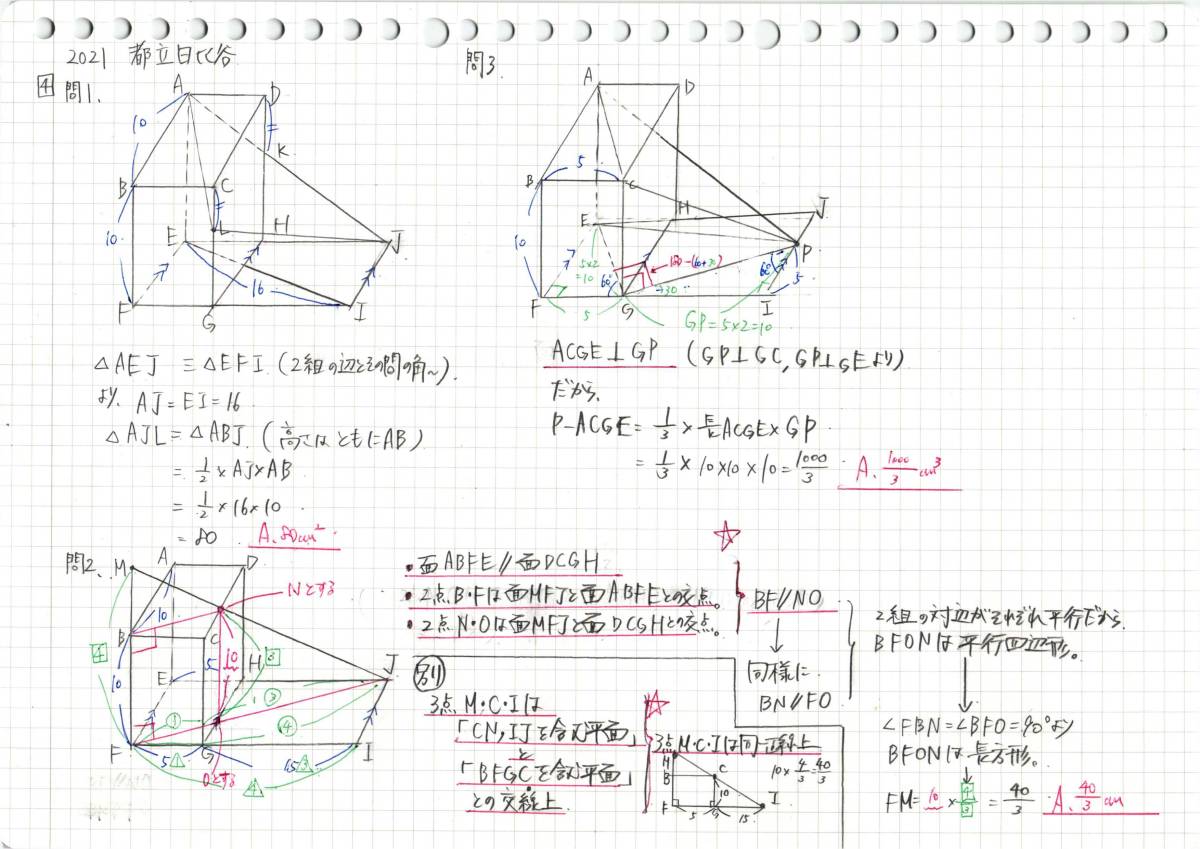 2021 都立日比谷
4 問1.
A
D
10
K
B
C
10
L
E
H
J
16
F
G
I
△AEJ ≡ △EFI (2組の辺とその間の角〜).
より. AJ = EI = 16
△AJL = △ABJ. (高さはともにAB)
= 1/2 × AJ × AB
= 1/2 × 16 × 10
= 80 A. 80cm²
問2.
M
A
D
Nとする
B
10
C
4
10
5
10
3
E
H
J
1
3
4
F
5
1
G
15
3
I
4
Oとする
・面ABFE // 面DCGH
・2点B・Fは面MFJと面ABFEとの交点。
・2点N・Oは面MFJと面DCGHとの交点。
☆
BF//NO
↓
同様に.
BN//FO
2組の対辺がそれぞれ平行だから.
BFONは平行四辺形。
↓
∠FBN=∠BFO=90°より
BFONは長方形。
FM= 10 × 4/3 = 40/3 A. 40/3 cm
別
3点M・C・Iは
「CN, IJを含む平面」
と
「BFGCを含む平面」
との交線上.
☆
3点M・C・Iは同一直線上
M
B
C
10
F
5
G
15
I
10×4/3=40/3
問3.
A
D
5
B
C
10
E
H
J
P
5×2
=10
180-(60+30)
60
60
5
30
F
5
G
I
GP=5×2=10
ACGE⊥GP (GP⊥GC, GP⊥GEより)
だから.
P-ACGE = 1/3 × 長ACGE × GP
= 1/3 × 10 × 10 × 10 = 1000/3 A. 1000/3 cm³